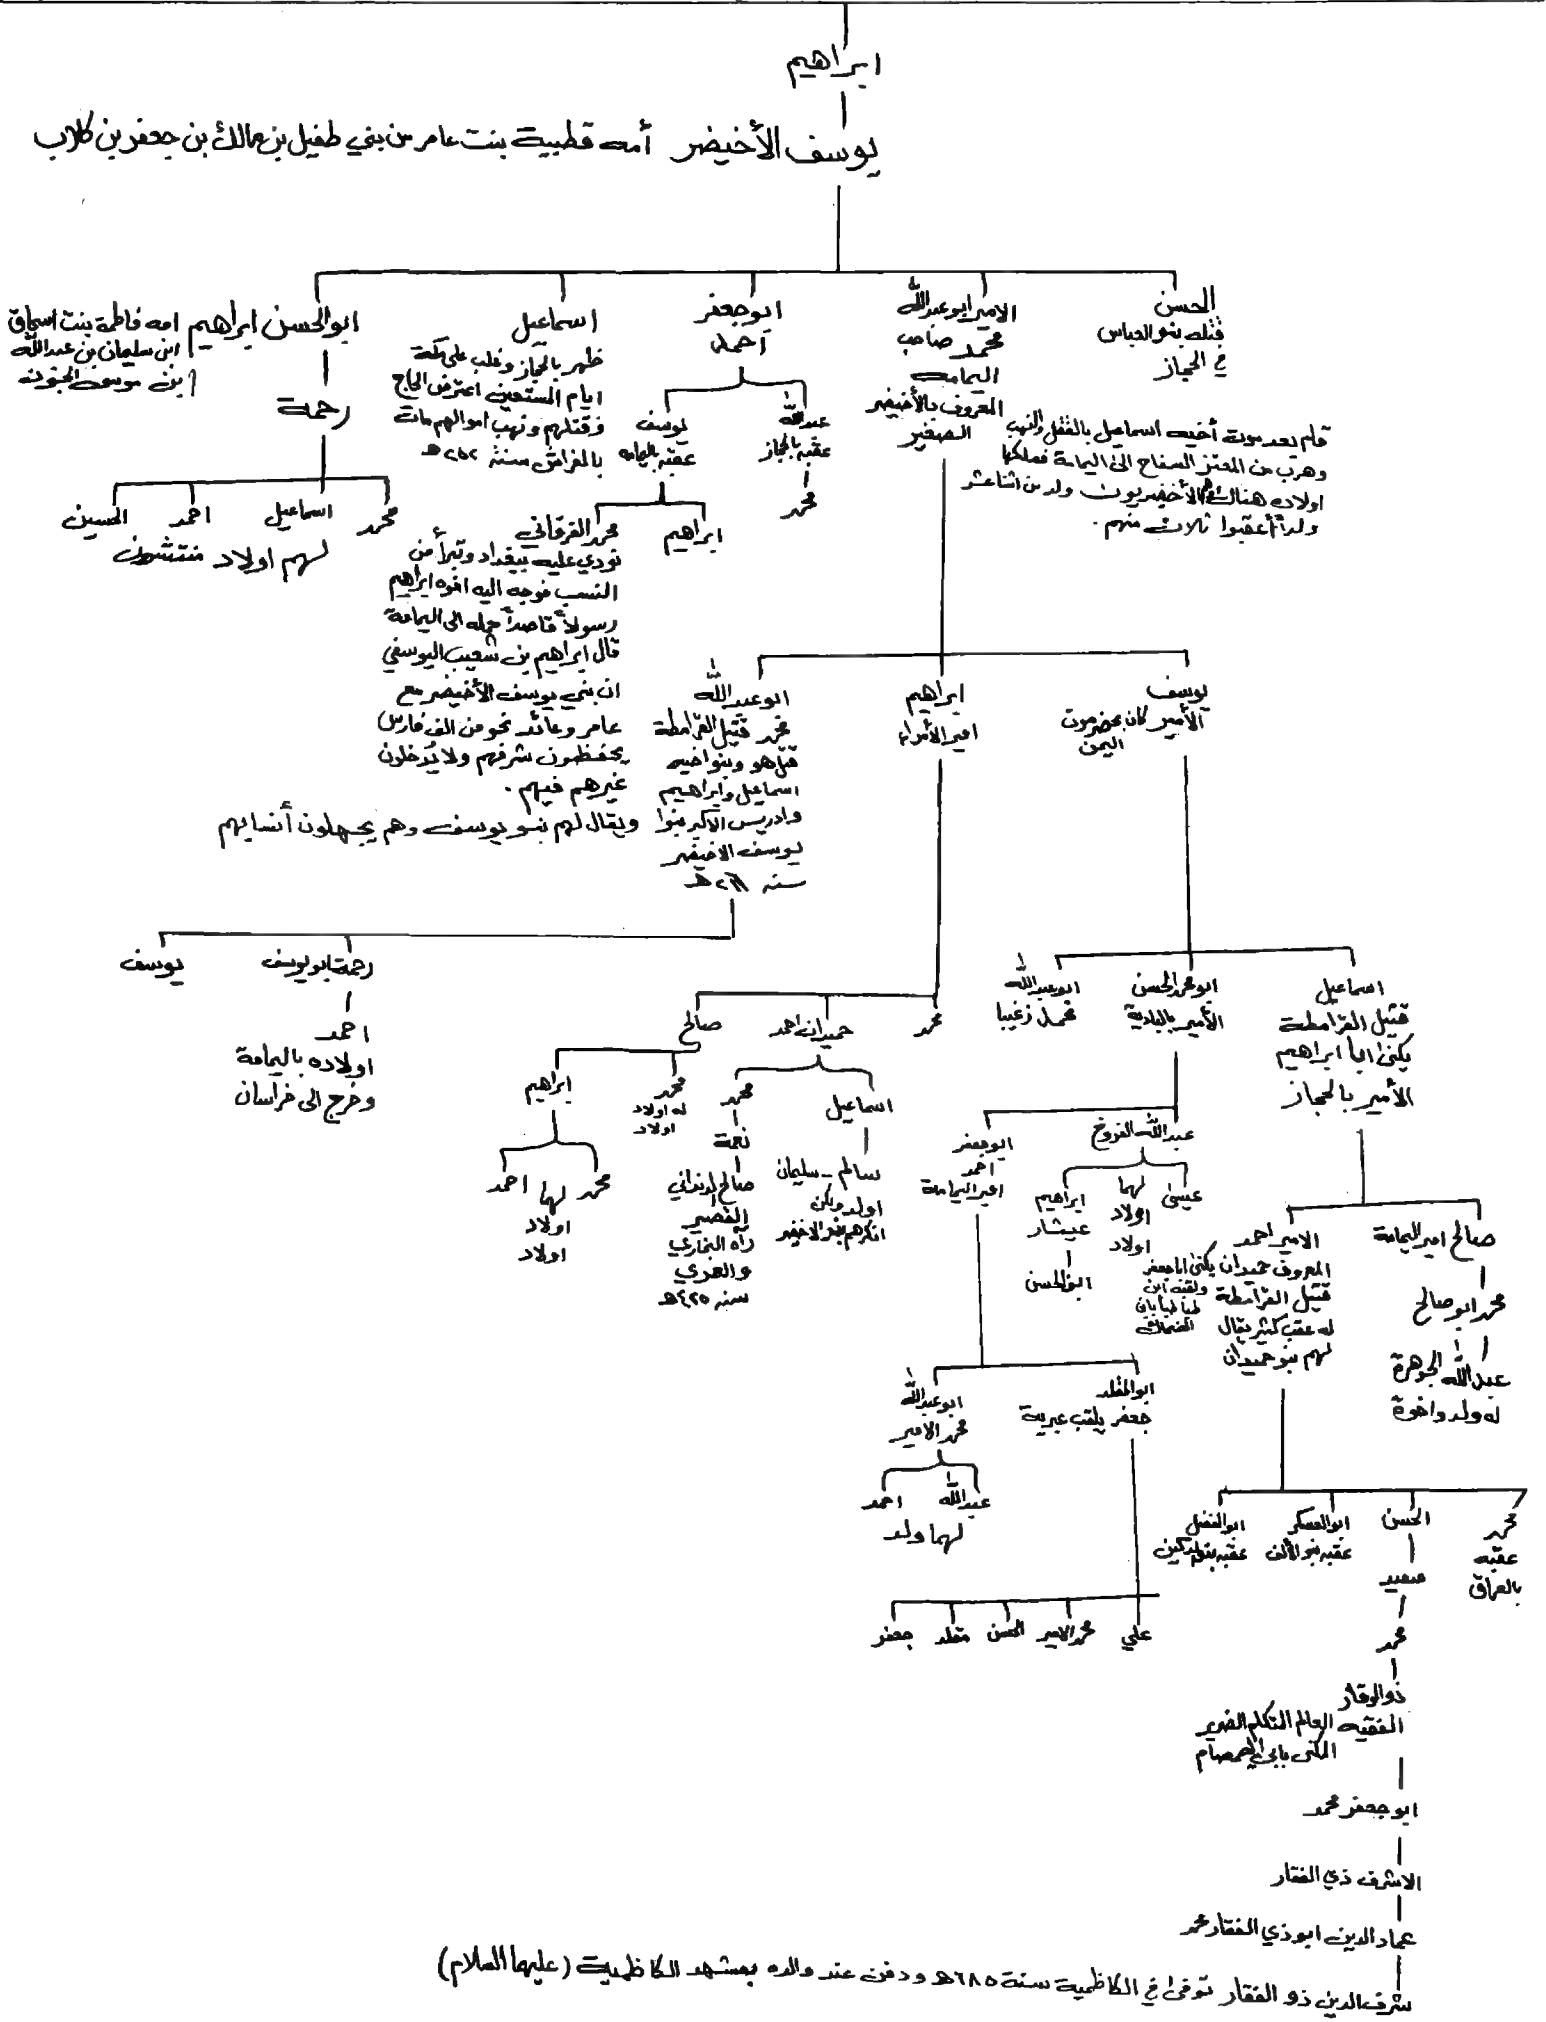 ابراهيم
يوسف الأخيضر أمه قطبية بنت عامر من بني طفيل بن مالك بن جعفر بن كلاب
الحسن
قتله بنو العباس
في الحجاز
الامير ابو عبدالله
محمد صاحب
اليمامه
المعروف بالأخيضر
الصغير
قام بعد موت أخيه اسماعيل بالقتل والنهب
وهرب من المعتز السفاح الى اليمامة فملكها
اولاده هناك هم الأخضريون ولد من اثنا عشر
ولداً أعقبوا ثلاث منهم.
ابو جعفر
أحمد
عبدالله
عقبه بالحجاز
محمد
يوسف
عقبه باليمامه
ابراهيم
محمد الفرقاني
نودي عليه ببغداد وتبرأ من
النسب فوجه اليه اخوه ابراهيم
رسولاً قاصداً حمله الى اليمامة
قال ابراهيم بن شعيب اليوسفي
ان بني يوسف الأخيضر مع
عامر وعائد نحو من الف فارس
يحفظون شرفهم ولا يدخلون
غيرهم فيهم.
ويقال لهم بنو يوسف وهم يجهلون أنسابهم
اسماعيل
ظهر بالحجاز وغلب على مكة
ايام المستعين اعترض الحاج
وقتلهم ونهب اموالهم مات
بالفراش سنة ٢٥٢ هـ
ابو الحسن ابراهيم امه فاطمة بنت اسحاق
ابن سليمان بن عبدالله
ابن موسى الجون
رحمة
محمد
اسماعيل
احمد
الحسين
لهم اولاد منتشرون
يوسف
الأمير كان بحضرموت
اليمن
ابراهيم
امير الأمراء
ابو عبدالله
محمد قتيل القرامطة
قتل هو وبنو اخيه
اسماعيل وابراهيم
وادريس الاكبر بنوا
يوسف الاخيضر
سنه
رحمة ابو يوسف
يوسف
احمد
اولاده باليمامة
وخرج الى خراسان
محمد
حميدان احمد
صالح
اسماعيل
سالم - سليمان
اولد ولكن
انكرهم بنو الاخيضر
محمد
نعمة
صالح الدنداني
القصير
رآه البخاري
والعمري
سنه ٤٢٥هـ
محمد
له اولاد
اولاد
ابراهيم
محمد
احمد
لهما
اولاد
اولاد
اسماعيل
قتيل القرامطة
يكنى ابا ابراهيم
الأمير بالحجاز
ابو محمد الحسن
الأمير بالبادية
ابو عبدالله
محمد زغيبا
عبدالله الفروخ
عيسى
ابراهيم
عيشار
لهما
اولاد
اولاد
ابو الحسن
ابو جعفر
احمد
امير اليمامة
صالح امير اليمامة
محمد ابو صالح
عبدالله الجوهرة
له ولد واخوة
الامير احمد
المعروف حميدان يكنى ابا جعفر
ولقبه ابن
طباطبا بابن
الضحاك
قتيل القرامطة
له عقب كثير يقال
لهم بنو حميدان
ابو المقلد
جعفر يلقب عبرية
ابو عبدالله
محمد الامير
عبدالله
احمد
لهما ولد
محمد
عقبه
بالعراق
الحسن
ابو العسكر
عقبه بنو الألف
ابو الفضل
عقبه بنو
سعيد
علي
محمد الامير
الحسن
مقلد
جعفر
محمد
ذو الوقار
الفقيه العالم المتكلم الضرير
المكنى بابي الصمصام
ابو جعفر محمد
الاشرف ذي الفقار
عماد الدين ابو ذي الفقار محمد
شرف الدين ذو الفقار توفى في الكاظمية سنة ٦٨٥هـ ودفن عند والده بمشهد الكاظمية (عليهما السلام)